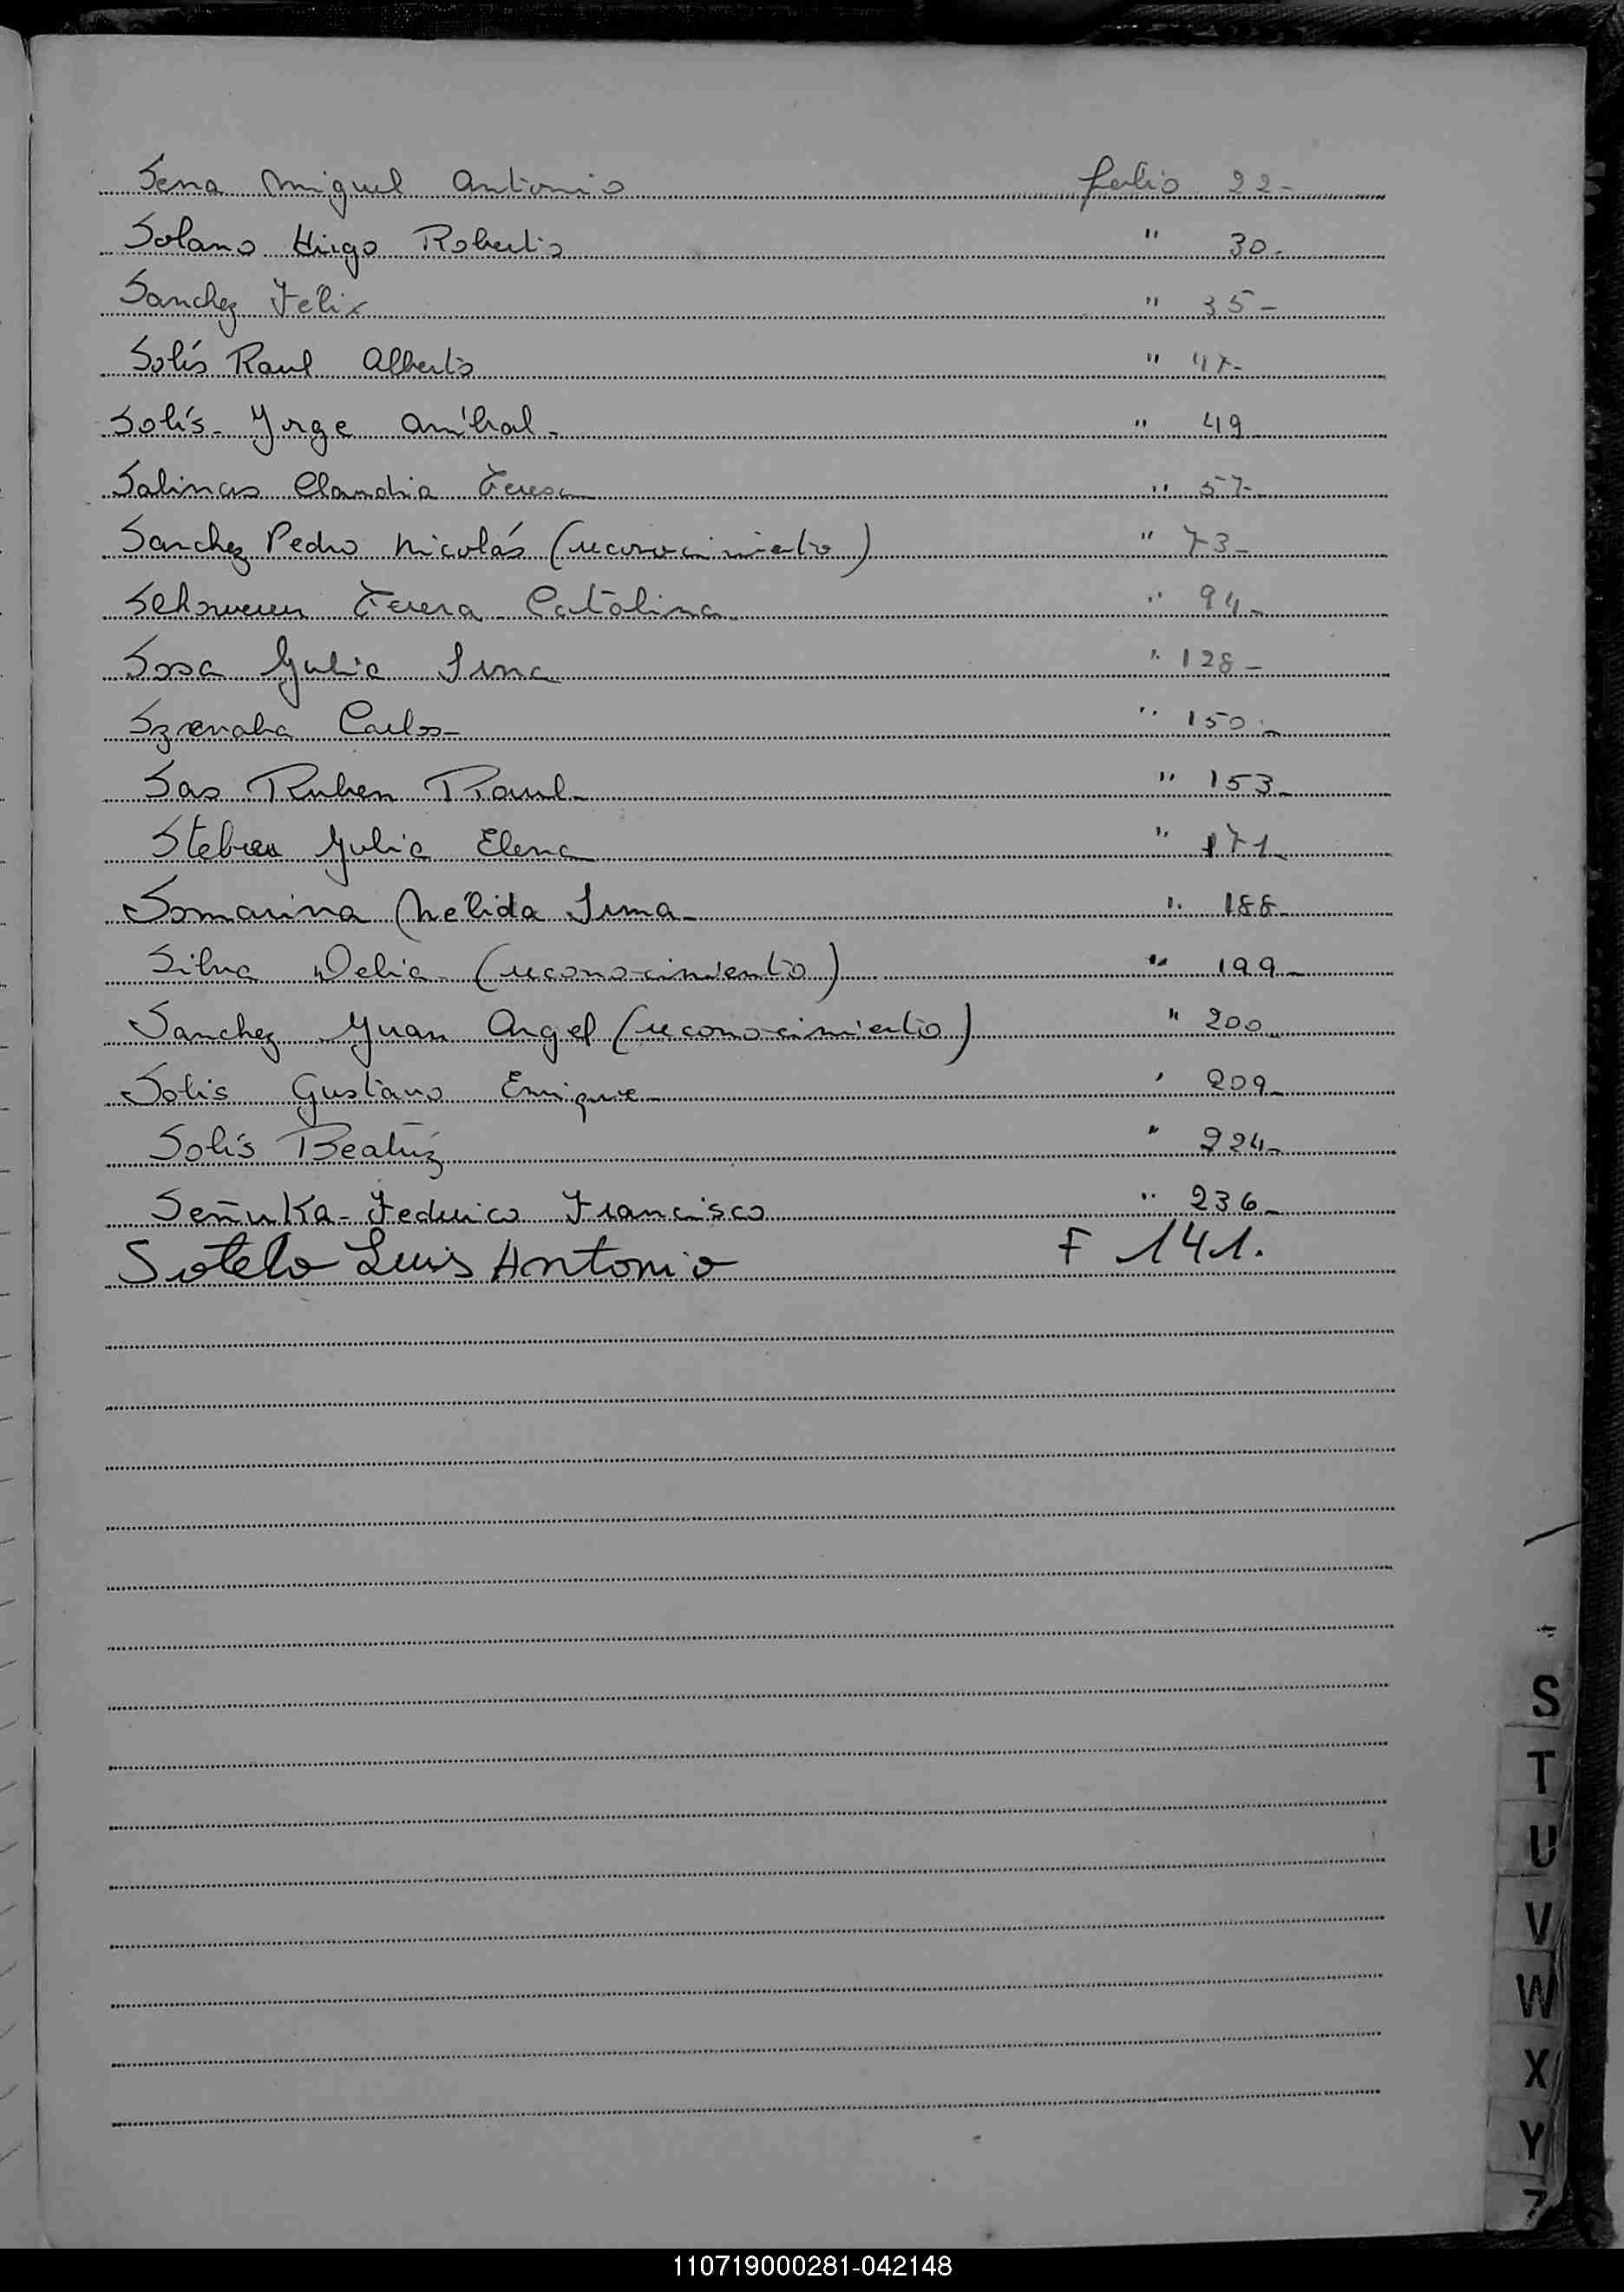 Sena Miguel Antonio folio 22-
Solano Hugo Roberto " 30-
Sanchez Félix " 35-
Solís Raul Alberto " 47-
Solís- Jorge Aníbal- " 49
Salinas Claudia Teresa " 57-
Sanchez Pedro Nicolás (reconocimiento) " 73-
Teresa Catalina " 94-
Sosa Julia Irma " 128-
Carlos- " 150-
Sas Ruben Raul- " 153-
Julia Elena " 171-
Somarina Nelida Irma- " 188-
Silva Delia- (reconocimiento) " 199-
Sanchez Juan Angel (reconocimiento) " 200-
Solis Gustavo Enrique " 209-
Solís Beatríz " 224-
Señuka- Federico Francisco " 236-
Sotelo Luis Antonio F 141.
S
T
U
V
W
X
Y
Z
110719000281-042148